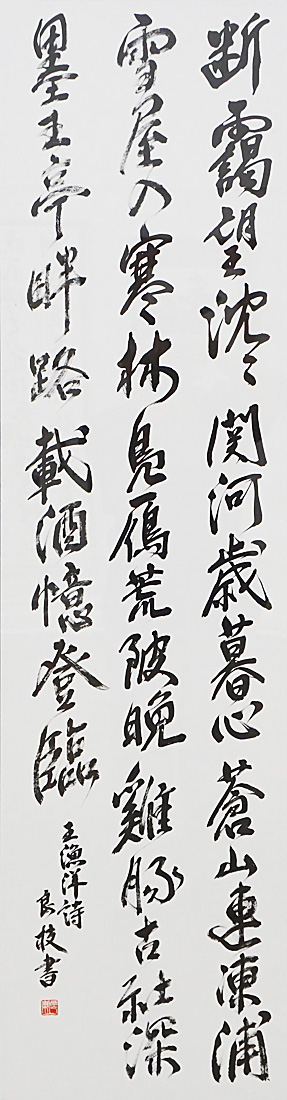 断靄望沈々関河歳暮心蒼山連凍浦
雪屋入寒林鳬鴈荒陂晩雞豚古社深
墨王亭畔路載酒憶登臨
王漁洋詩
良枝書